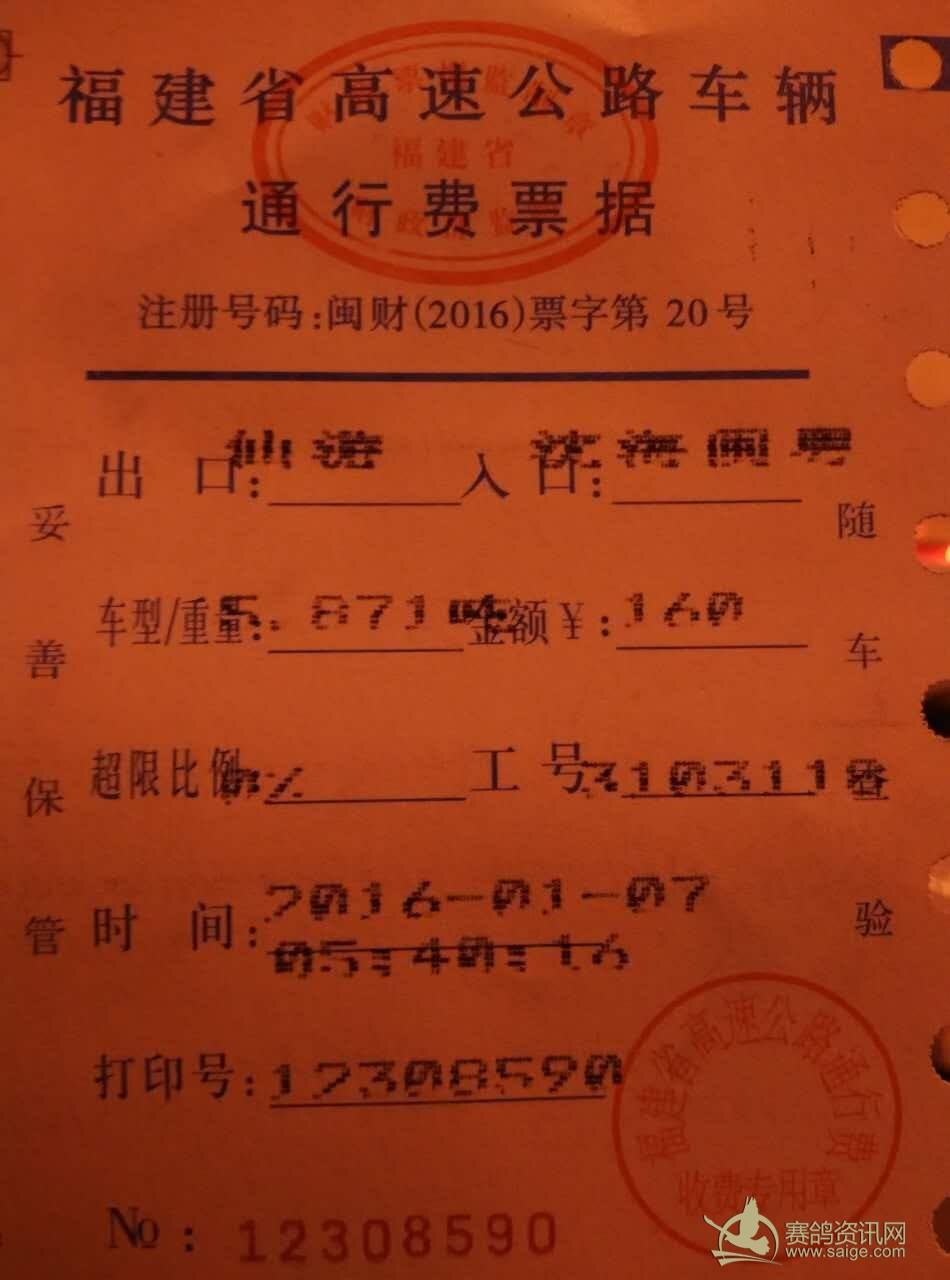 福建省高速公路车辆
通行费票据
福建省
注册号码:闽财(2016)票字第 20号
出 口: 仙游 入 口: 沈海闽粤
车型/重量: 5.871吨 金额¥: 160
超限比例 0% 工 号 3103110
时 间: 2016-01-07
05:40:16
打印号: 12308590
No : 12308590
妥善保管
随车查验
福建省高速公路通行费
收费专用章
赛鸽资讯网
www.saige.com